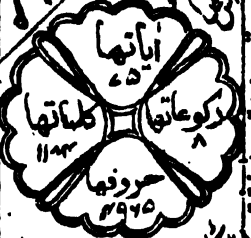 أياتها
۷۵
ركوعاتها
۸
كلماتها
۱۱۸۴
حروفها
۴۹۶۵